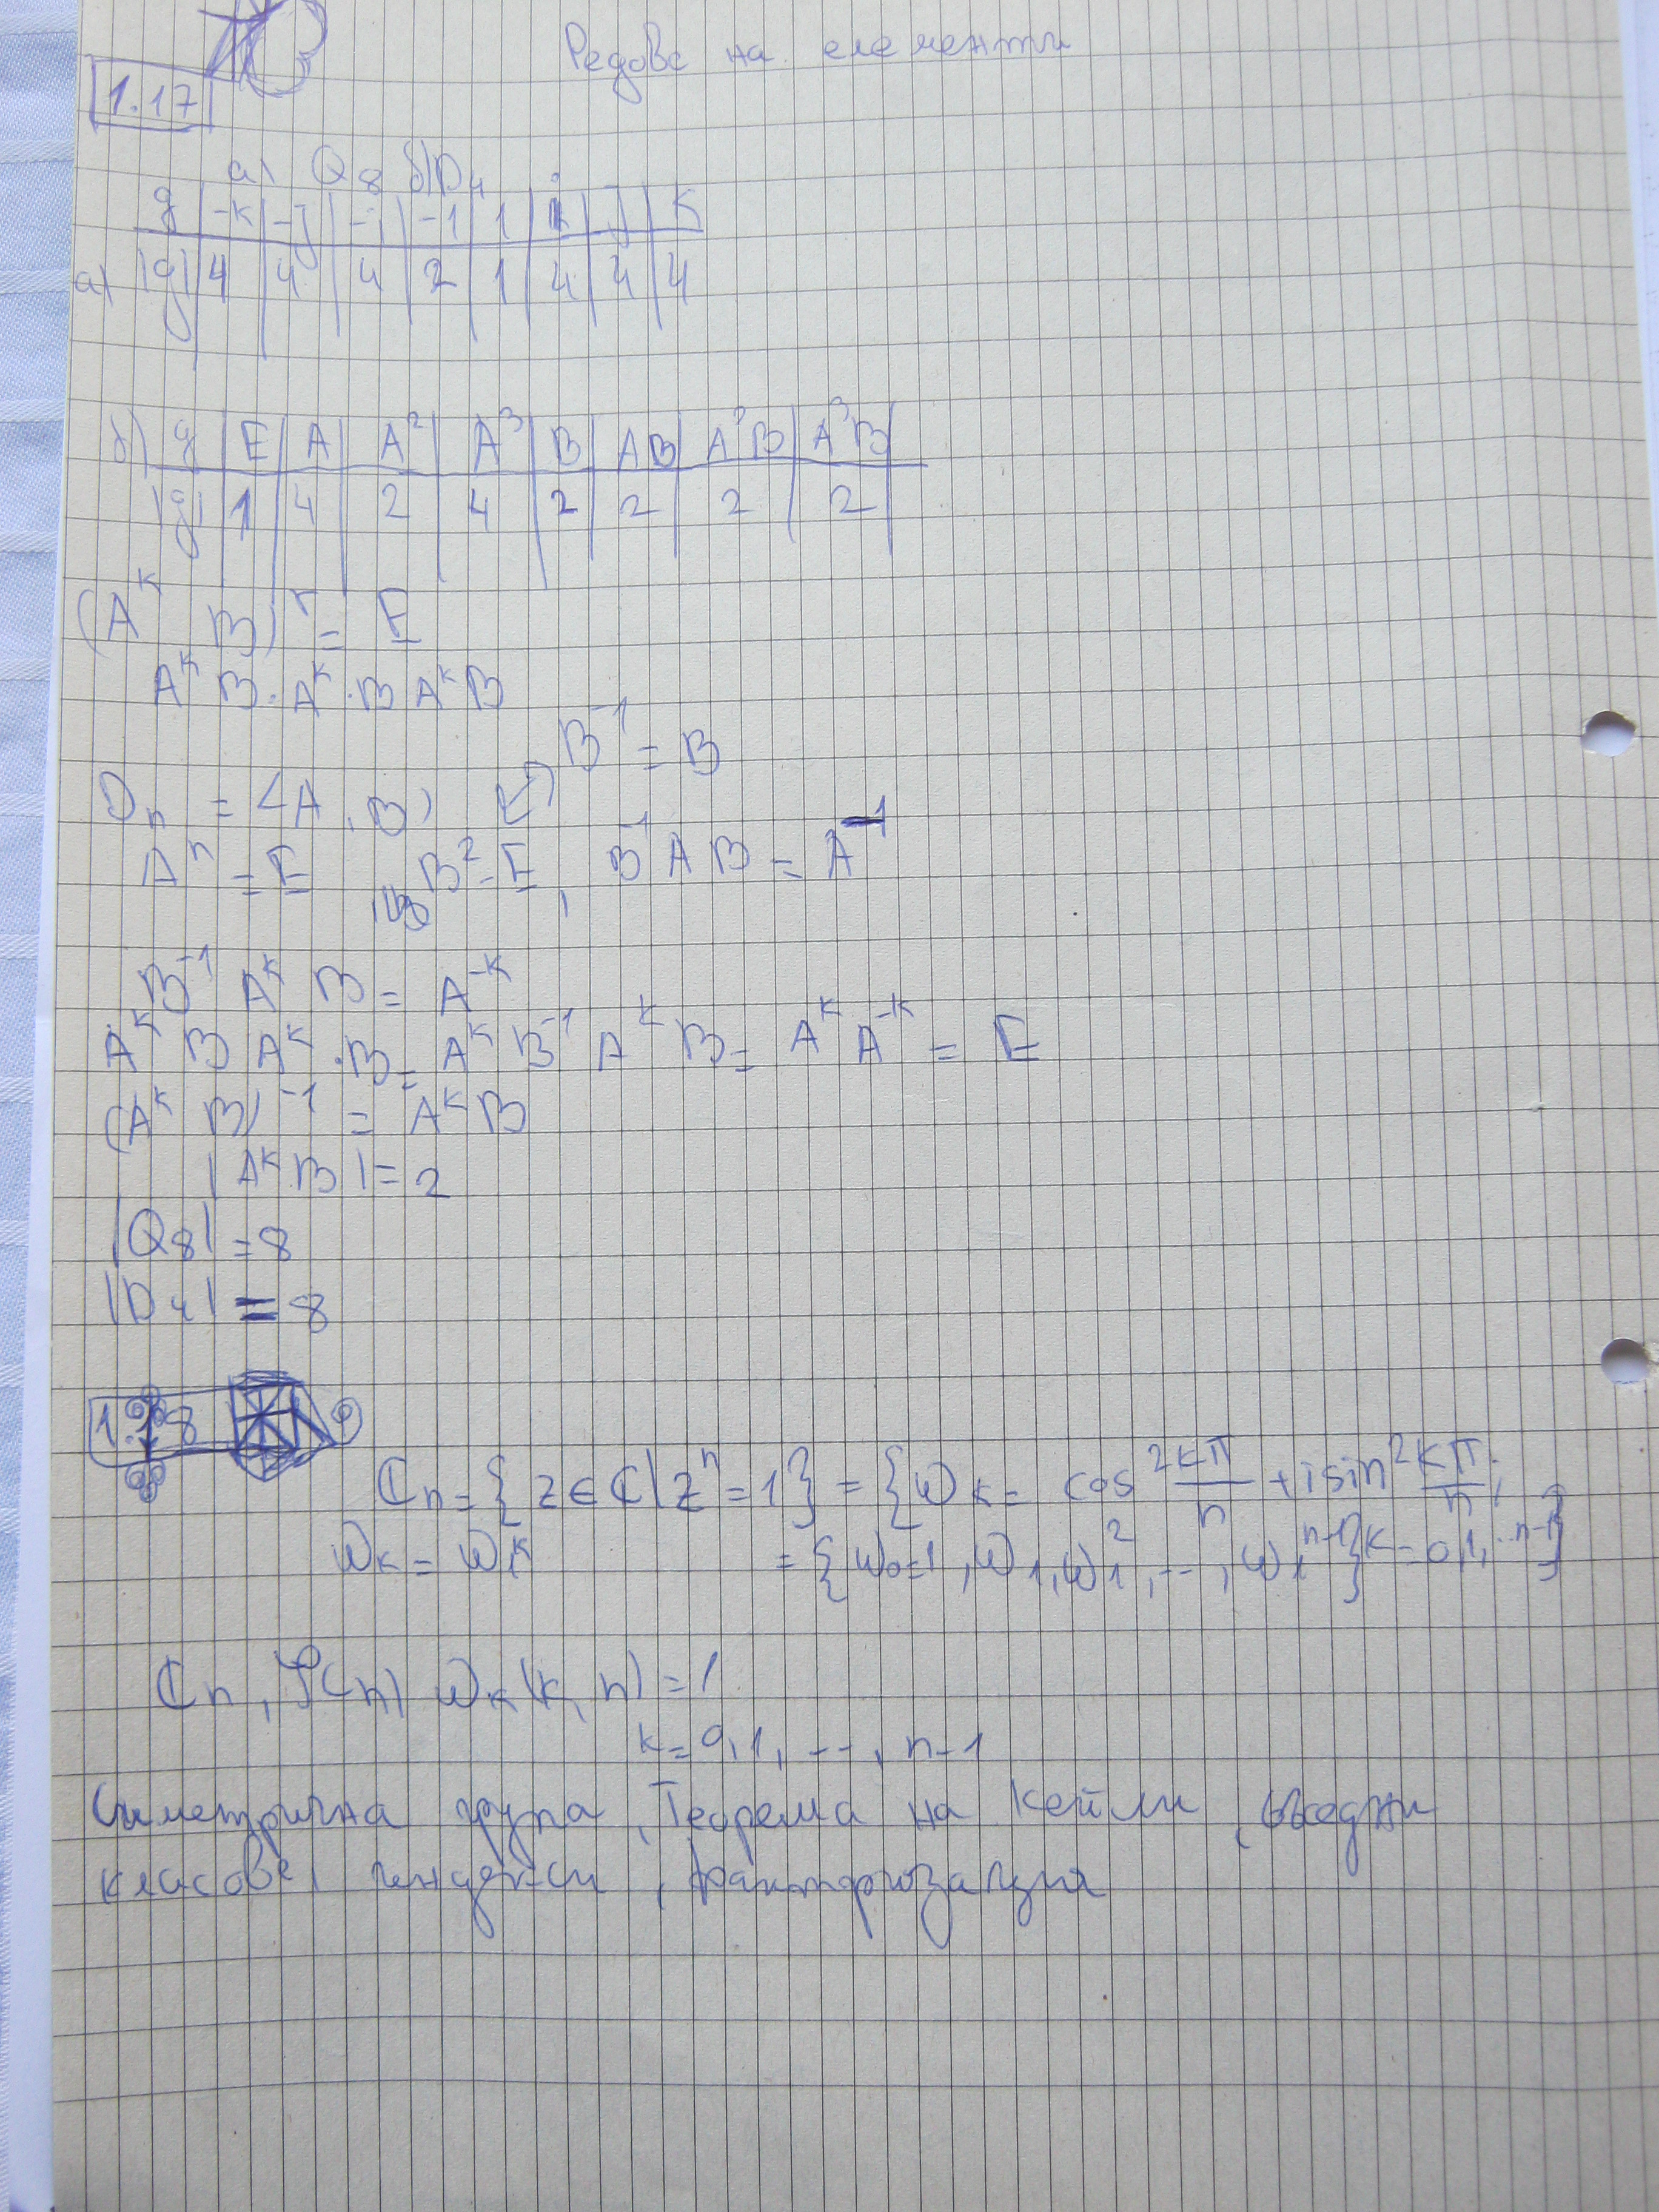 Редове на елементи
1.17
а) Q₈ б) D₄
g | -k | -j | -i | -1 | 1 | i | j | k
а) |g| | 4 | 4 | 4 | 2 | 1 | 4 | 4 | 4
б) g | E | A | A² | A³ | B | AB | A²B | A³B
|g| | 1 | 4 | 2 | 4 | 2 | 2 | 2 | 2
(Aᵏ B)ʳ = E
Aᵏ B · Aᵏ · B Aᵏ B
B⁻¹ = B
Dₙ = <A, B>
Aⁿ = E B² = E, B⁻¹ A B = A⁻¹
B⁻¹ Aᵏ B = A⁻ᵏ
Aᵏ B Aᵏ · B = Aᵏ B⁻¹ Aᵏ B = Aᵏ A⁻ᵏ = E
(Aᵏ B)⁻¹ = Aᵏ B
|Aᵏ B| = 2
|Q₈| = 8
|D₄| = 8
1.18
ℂₙ = {z ∈ ℂ | zⁿ = 1} = {ωₖ = cos 2kπ/n + i sin 2kπ/n; k = 0, 1, ... n-1}
ωₖ = ω₁ᵏ = {ω₀ = 1, ω₁, ω₁², ..., ω₁ⁿ⁻¹}
ℂₙ, φ(n) ωₖ (k, n) = 1
k = 0, 1, ..., n-1
Симетрична група, Теорема на Кейли, съседни
класове, индекси, факторизация